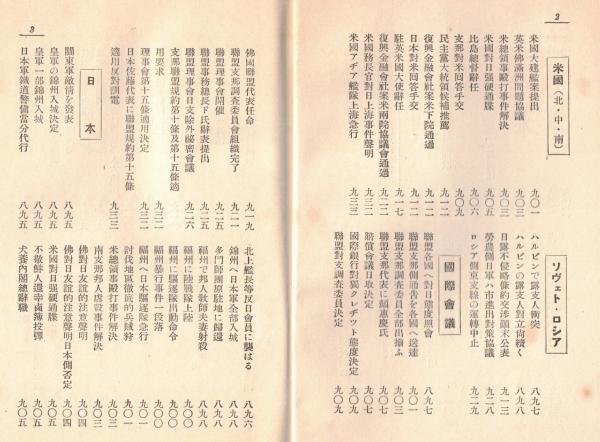 2
米國（北・中・南）
米國大建艦案提出 九〇一
英米佛滿洲問題協議 九〇三
米總領事毆打事件解決 九〇三
米國對日强硬通牒 九〇五
比島總督辭任 九〇六
支那對米回答手交 九〇九
民主黨大統領候補推薦 九一二
復興金融會社案米下院通過 九一二
日本對米回答手交 九一二
駐英米國大使辭任 九一七
復興金融會社案米兩院協議會通過 九二二
米國務長官對日上海事件聲明 九三三
米國アヂア艦隊上海急行 九三三
ソヴェト・ロシア
ハルピンで露支人衝突 八九七
ハルピンの露支人對立尙續く 九〇一
日露不侵畧條約交渉顚末公表 九一三
勞農側日軍ハ市進出對策協議 九二八
ロシア側東支線の運轉中止 九二九
國際會議
聯盟各國へ對日態度照會 八九七
聯盟支那側通告を各國へ送達 九〇一
聯盟支那調查委員全部出揃ふ 九〇三
聯盟支那代表に顏惠慶氏 九〇七
賠償會議日取決定 九〇七
國際銀行對獨クレヂツト態度決定 九〇九
聯盟對支調查委員決定 九〇九
3
佛國聯盟代表任命 九一九
聯盟支那調查委員會組織完了 九二一
聯盟理事會開催 九二五
聯盟事務總長ド氏辭表提出 九二五
聯盟理事會日支除外祕密會議 九二六
支那聯盟規約第十條及第十五條適
用要求 九三二
理事會第十五條適用決定 九三二
日本佐藤代表に聯盟規約第十五條
適用反對訓電 九三三
日本
關東軍敵情を發表 八九五
皇軍の錦州入城決定 八九五
皇軍一部錦州入城 八九五
日本軍鐵道警備當分代行 八九五
北上艦長等反日會員に襲はる 八九六
錦州へ日本軍全部入城 八九八
多門師團原駐地に歸還 八九八
福州で邦人敎師夫妻射殺 八九八
福州に陸戰隊上陸 九〇〇
福州に驅逐隊出動命令 九〇〇
福州暴行事件一段落 九〇〇
福州へ日本驅逐隊急行 九〇一
討伐地區徹底的兵賊狩 九〇一
米總領事毆打事件解決 九〇三
南支那邦人虐殺事件解決 九〇三
佛對日友誼的注意聲明 九〇四
佛對日友誼的注意聲明日本側否定 九〇四
米國對日强硬通牒 九〇五
不敬鮮人還幸鹵簿投彈 九〇五
犬養內閣總辭職 九〇五